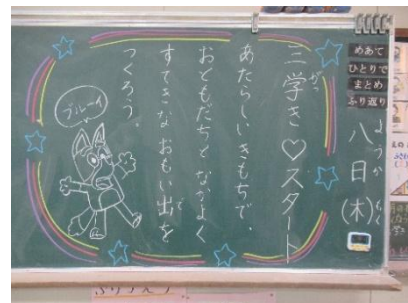 めあて
ひとりで
まとめ
ふり返り
八日(木)
ようか もく
三学き♡スタート
がっ
あたらしいきもちで、
おともだちとなかよく
すてきなおもい出を
で
つくろう
ブルーイ